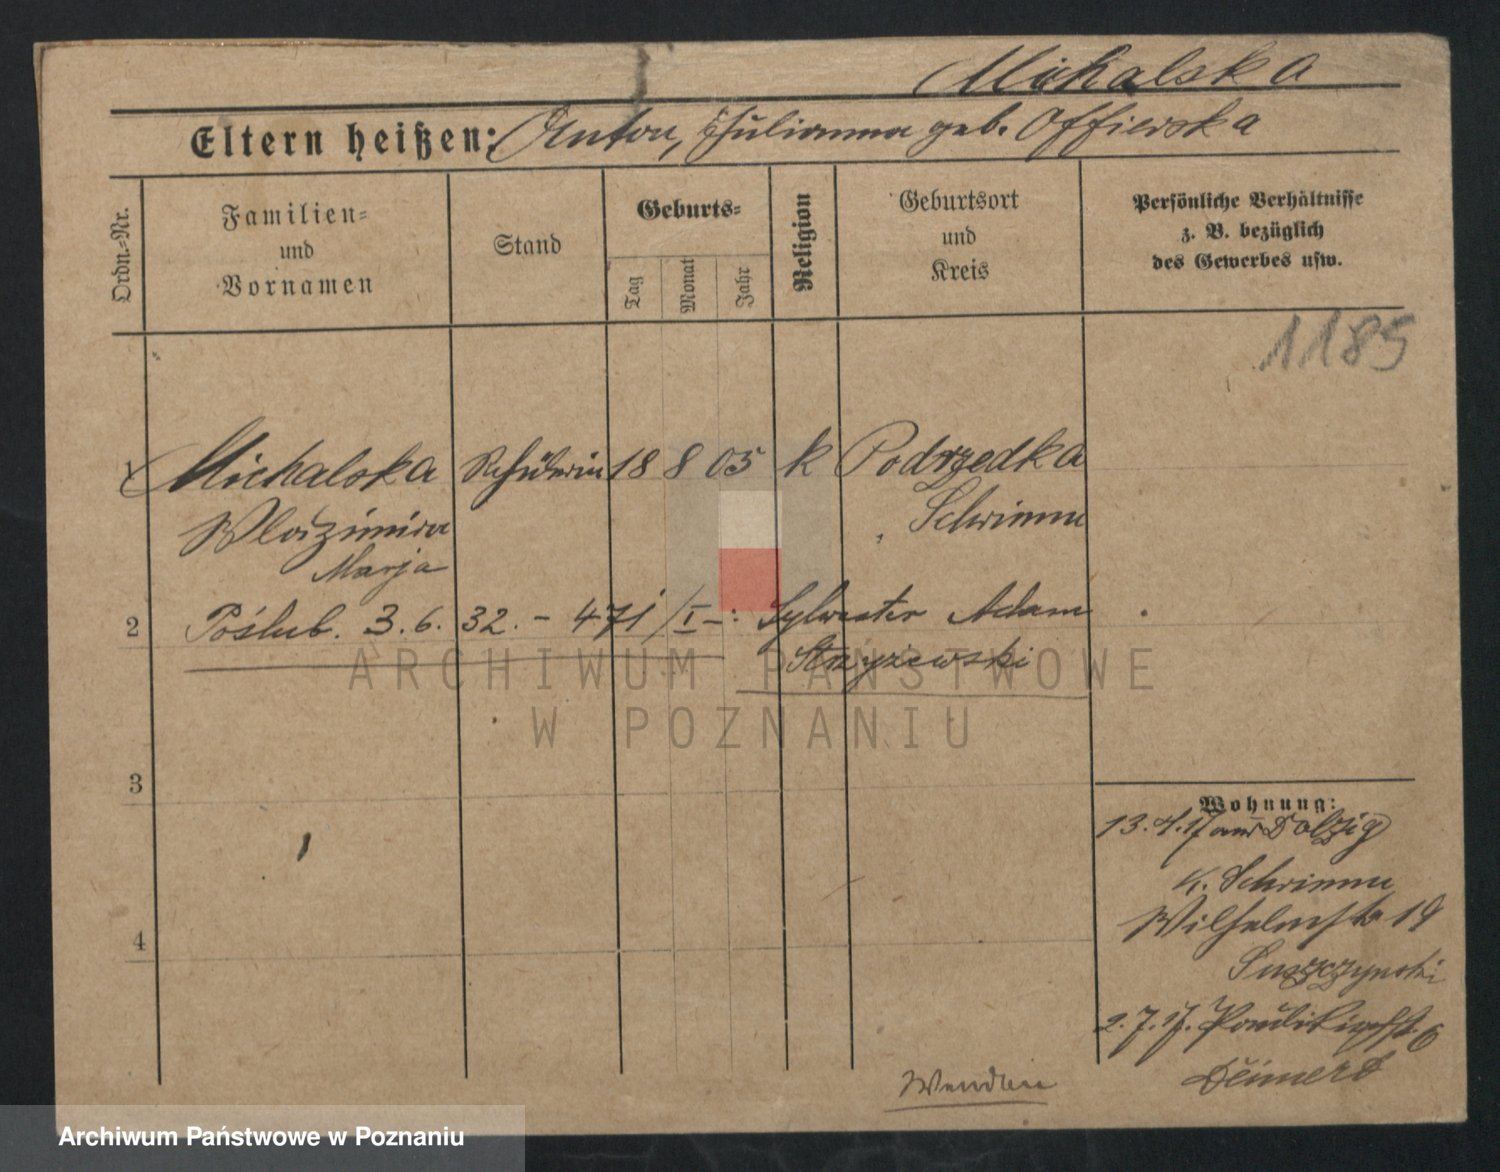 Michalska
Eltern heißen: Anton, Julianna geb. Offierska
Ordn.-Nr.
Familien-
und
Vornamen
Stand
Geburts-
Tag
Monat
Jahr
Religion
Geburtsort
und
Kreis
Persönliche Verhältnisse
z. B. bezüglich
des Gewerbes usw.
1185
1 Michalska Schülerin 18 8 05 k Podrzedka
Wlodzimira Schrimm
Marja
2 Poślub. 3.6.32. - 471/I-: Sylwester Adam
Strzyzewski
ARCHIWUM PAŃSTWOWE
W POZNANIU
3
4
Wohnung:
13.4.17 aus Dolzig
K. Schrimm
Wilhelmstr 19
Suszczynski
2.7.17. Paulikirchst. 6
Wenden
Archiwum Państwowe w Poznaniu